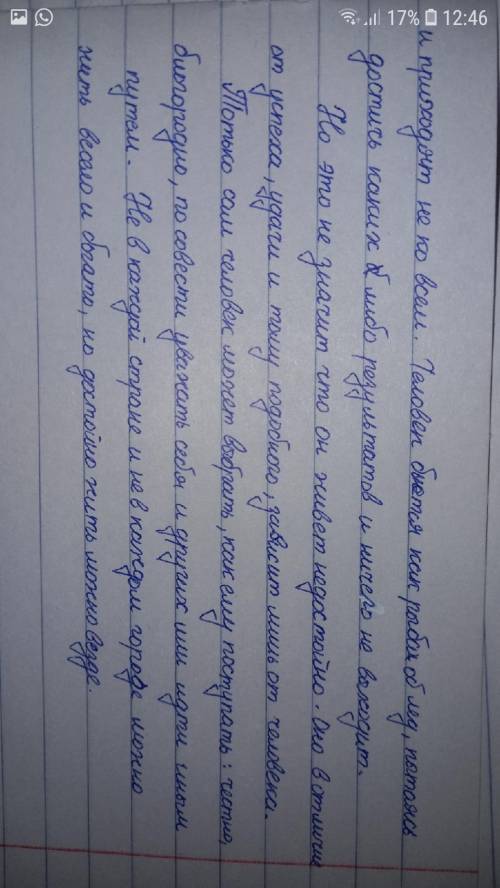 17% 12:46
и приходят не ко всем. Человек бьётся как рыба об лёд, пытаясь
достичь каких либо результатов и ничего не выходит.
Но это не значит что он живет недостойно. Оно в отличие
от успеха, удачи и тому подобного, зависит лишь от человека.
Только сам человек может выбрать, как ему поступать: честно,
благородно, по совести уважать себя и других или идти иным
путем. Не в каждой стране и не в каждом городе можно
жить весело и богато, но достойно жить можно везде.